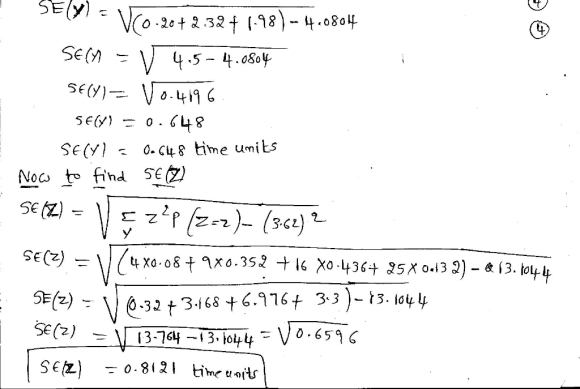 SE(Y) = √(0.20+2.32+1.98) - 4.0804
④
④
SE(Y) = √4.5 - 4.0804
SE(Y) = √0.4196
SE(Y) = 0.648
SE(Y) = 0.648 time units
Now to find SE(Z)
SE(Z) = √Σ_Y z²P(Z=z) - (3.62)²
SE(Z) = √(4×0.08+9×0.352+16×0.436+25×0.132) - 13.1044
SE(Z) = √(0.32+3.168+6.976+3.3) - 13.1044
SE(Z) = √13.764 - 13.1044 = √0.6596
SE(Z) = 0.8121 time units